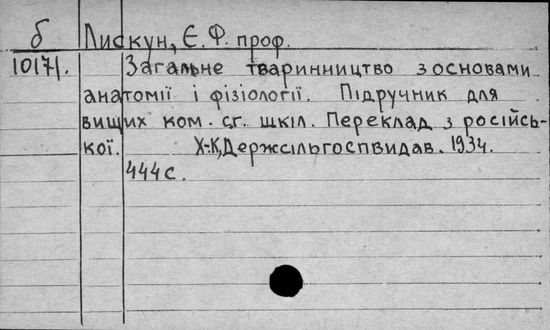 б Лискун, Є. Ф. проф.
10171. Загальне тваринництво з основами
анатомії і фізіології. Підручник для
вищих ком. с.г. шкіл. Переклад з російсь-
кої. Х-К, Держсільгоспвидав. 1934.
444 с.